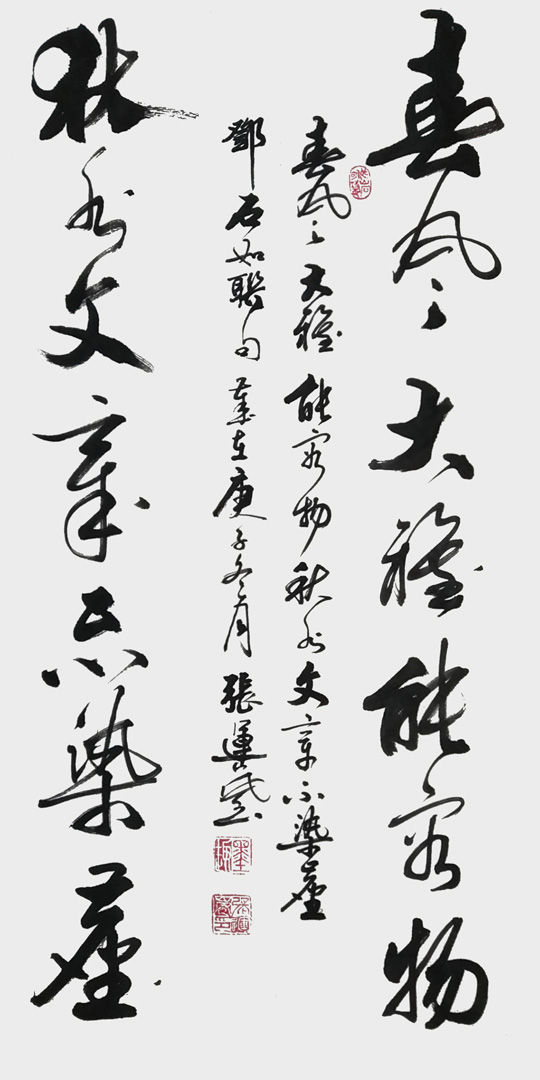 春風大雅能容物
春風大雅能容物秋水文章不染塵
鄧石如聯句歲在庚子冬月張運
秋水文章不染塵